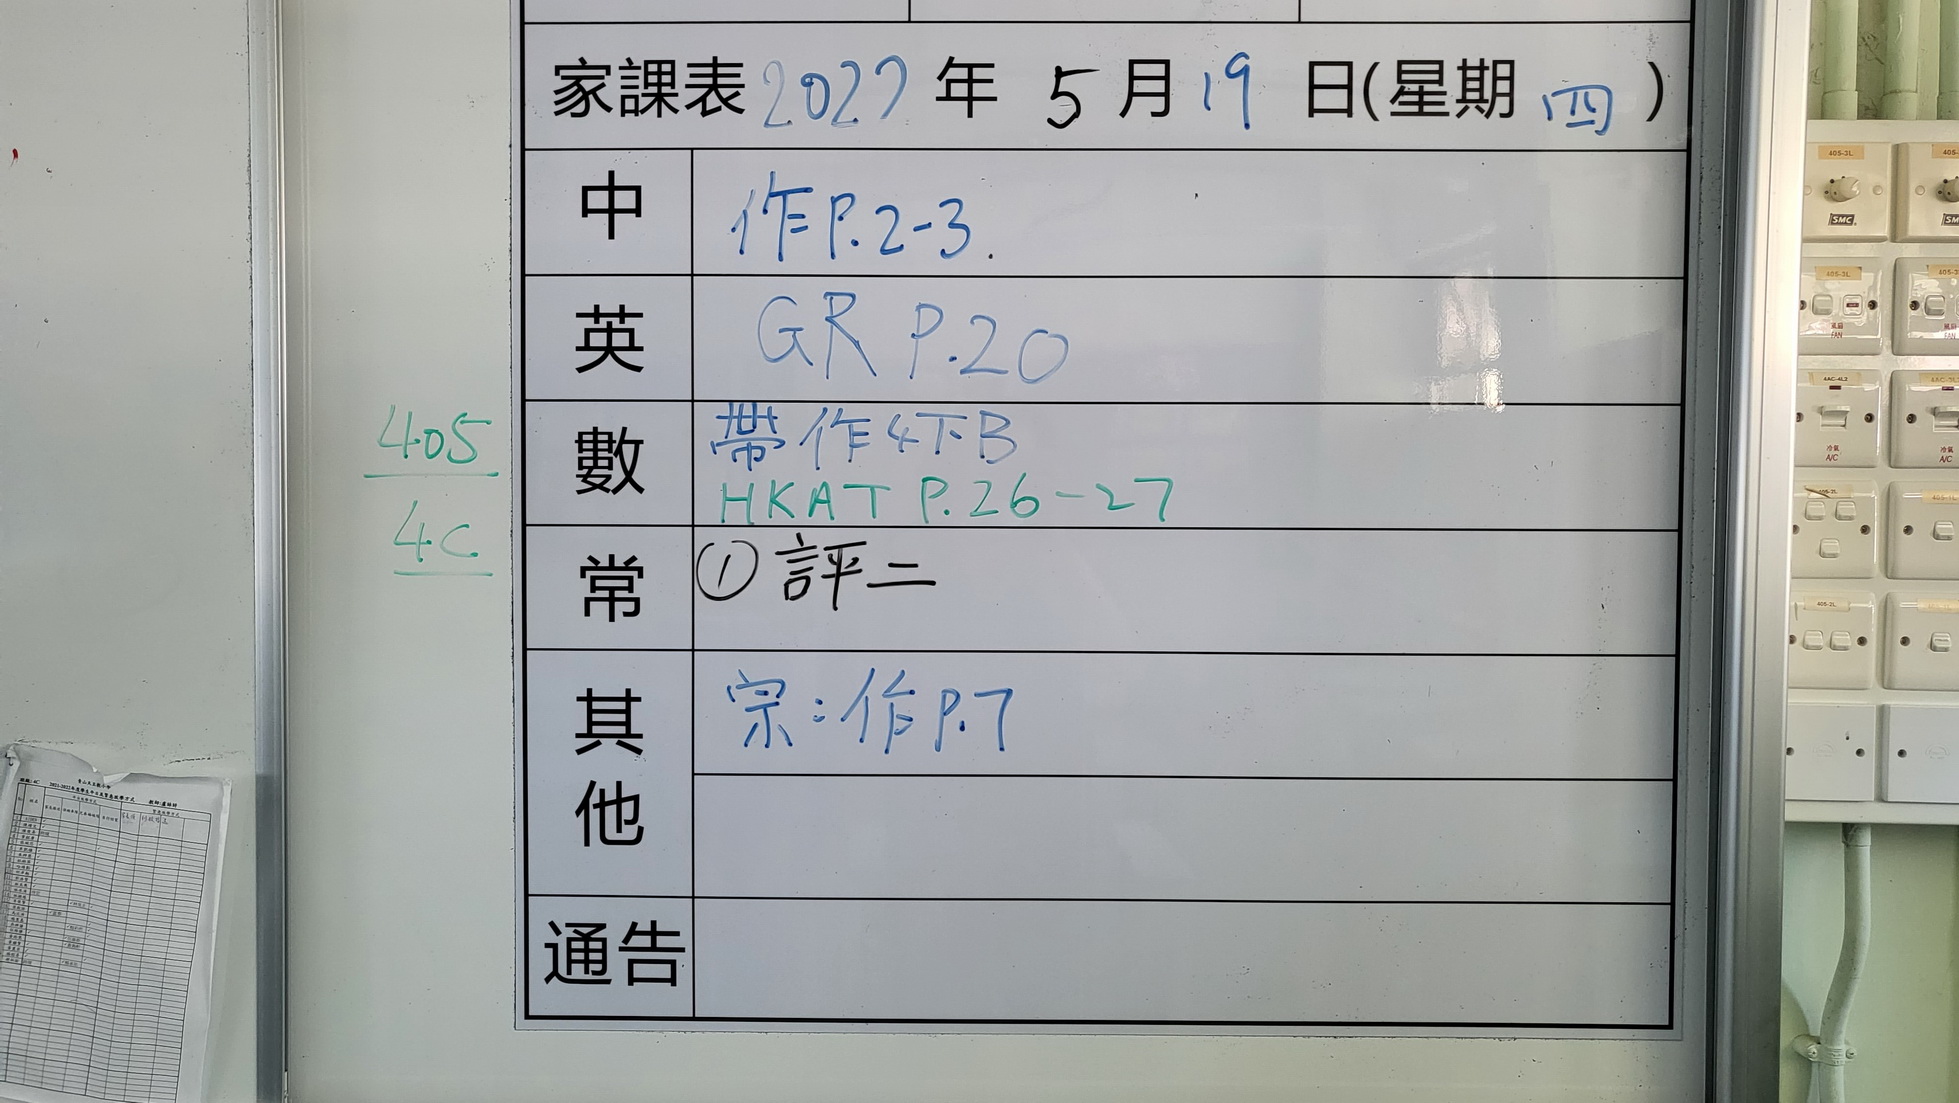 家課表 2022 年 5 月 19 日(星期 四 )
中 作P.2-3.
英 GR P.20
數 帶作4下B
HKAT P.26-27
常 ① 評二
其他 宗:作P.7
通告
405
4C
405-3L
SMC
405-3L
風扇
FAN
4AC-4L2
冷氣
A/C
冷氣
A/C
405-2L